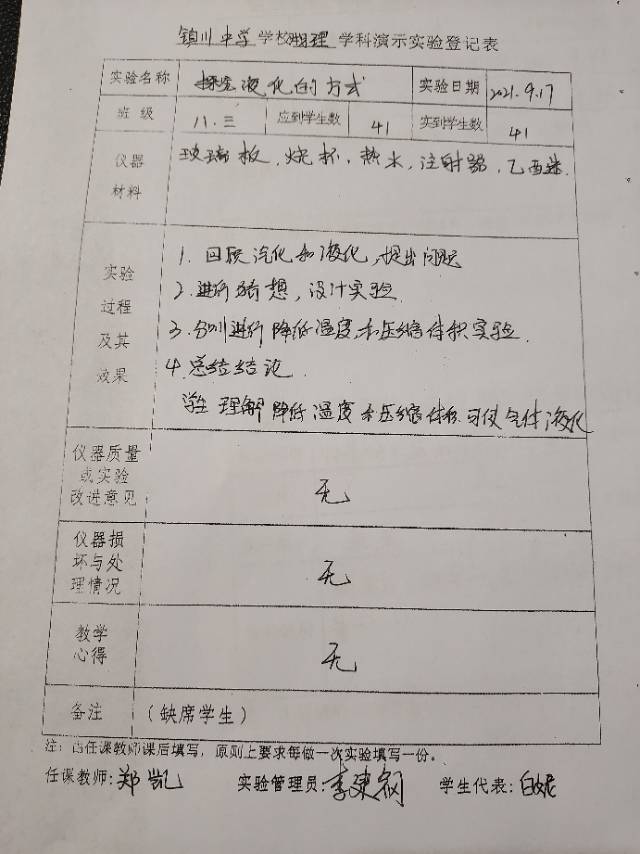 镇川中学学校物理学科演示实验登记表
实验名称 探究液化的方式 实验日期 2021.9.17
班级 八.三 应到学生数 41 实到学生数 41
仪器材料 玻璃板,烧杯,热水,注射器,乙西迷.
实验过程及其效果
1. 回顾汽化和液化,提出问题
2. 进行猜想,设计实验
3. 分别进行降低温度和压缩体积实验.
4. 总结结论
学生理解降低温度和压缩体积可使气体液化
仪器质量或实验改进意见 无
仪器损坏与处理情况 无
教学心得 无
备注 (缺席学生)
注:由任课教师课后填写,原则上要求每做一次实验填写一份。
任课教师:郑凯 实验管理员:李建钢 学生代表:白